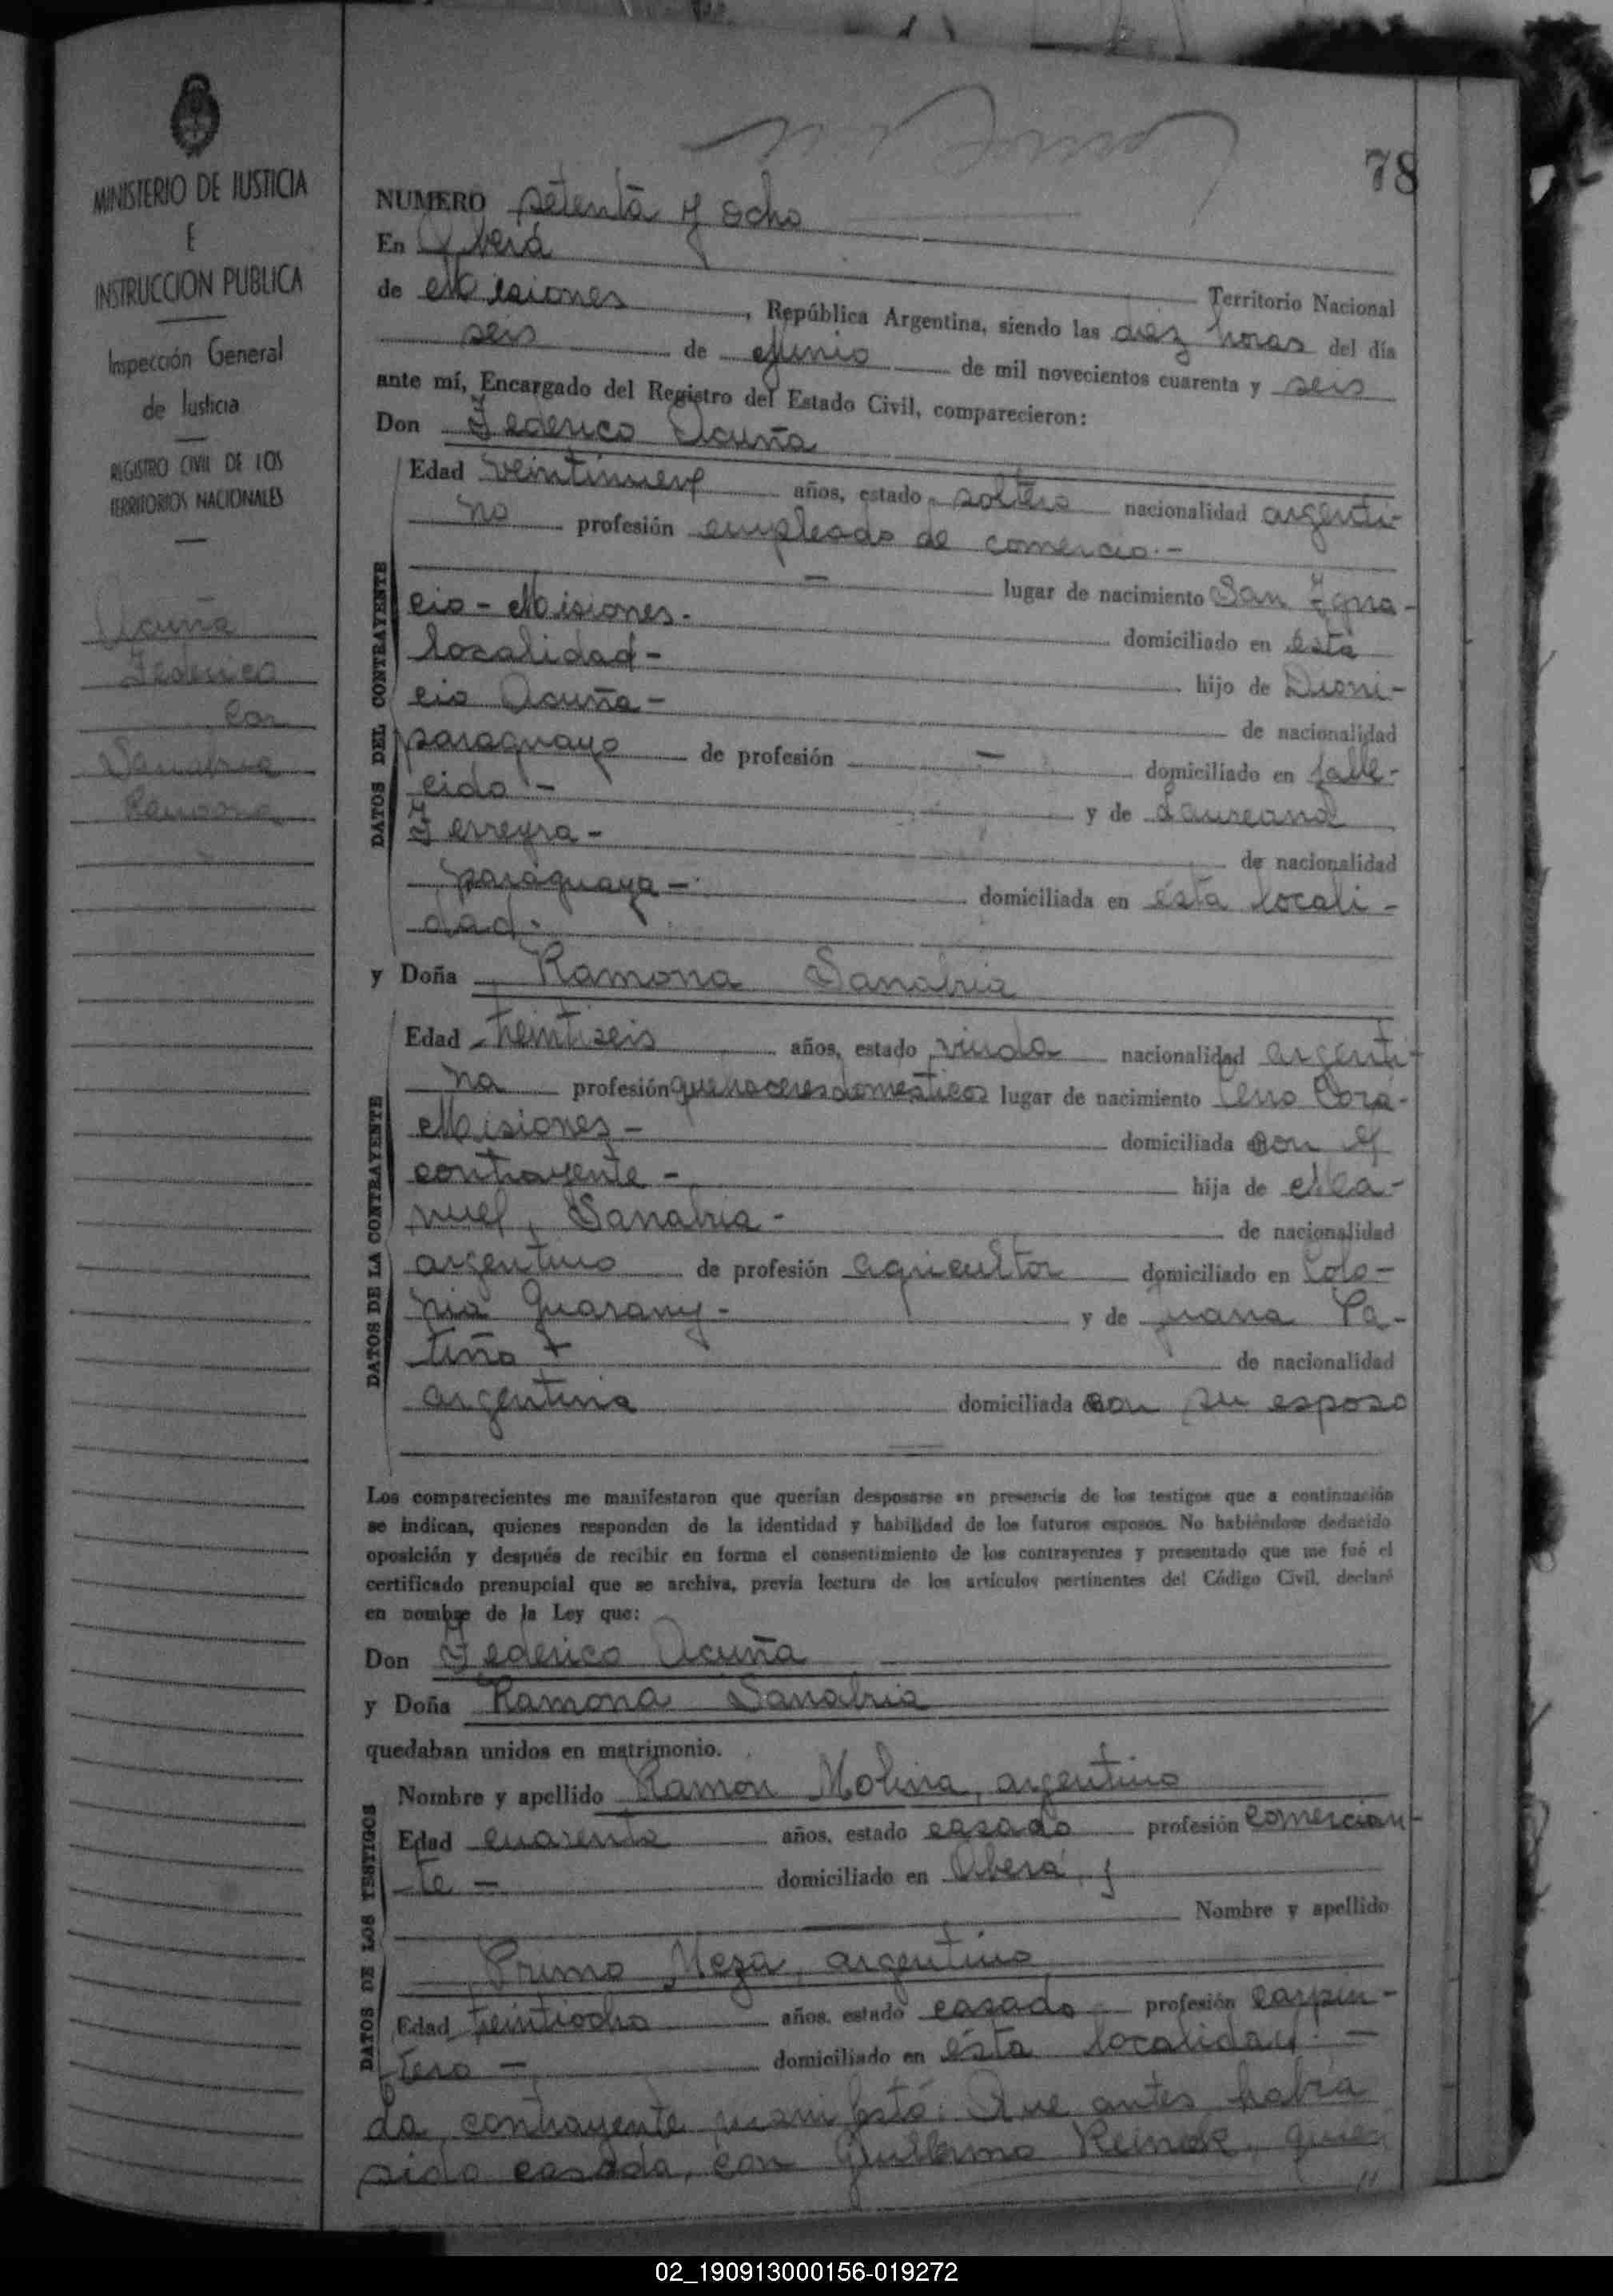 MINISTERIO DE JUSTICIA
E
INSTRUCCION PUBLICA
Inspección General
de Justicia
REGISTRO CIVIL DE LOS
TERRITORIOS NACIONALES
Acuña
Federico
con
Sanabria
Ramona
78
NUMERO setenta y ocho
En Oberá
Territorio Nacional
de Misiones, República Argentina, siendo las diez horas del día
seis de Junio de mil novecientos cuarenta y seis
ante mí, Encargado del Registro del Estado Civil, comparecieron:
Don Federico Acuña
DATOS DEL CONTRAYENTE
Edad veintinueve años, estado soltero nacionalidad argenti-
no profesión empleado de comercio.-
lugar de nacimiento San Igna-
cio - Misiones.- domiciliado en ésta
localidad - hijo de Dioni-
cio Acuña - de nacionalidad
paraguayo de profesión — domiciliado en falle-
cido - y de Laureana
Ferreyra - de nacionalidad
paraguaya -. domiciliada en ésta locali-
dad.
y Doña Ramona Sanabria
DATOS DE LA CONTRAYENTE
Edad treintiseis años, estado viuda nacionalidad argenti-
na profesión quehaceres domesticos lugar de nacimiento Cerro Corá-
Misiones - domiciliada con el
contrayente - hija de Ma-
nuel, Sanabria - de nacionalidad
argentino de profesión agricultor domiciliado en Colo-
nia Guarany - y de Juana Pa-
tiño + de nacionalidad
argentina domiciliada con su esposo
Los comparecientes me manifestaron que querían desposarse en presencia de los testigos que a continuación
se indican, quienes responden de la identidad y habilidad de los futuros esposos. No habiéndose deducido
oposición y después de recibir en forma el consentimiento de los contrayentes y presentado que me fué el
certificado prenupcial que se archiva, previa lectura de los artículos pertinentes del Código Civil, declaré
en nombre de la Ley que:
Don Federico Acuña
y Doña Ramona Sanabria
quedaban unidos en matrimonio.
DATOS DE LOS TESTIGOS
Nombre y apellido Ramon Molina, argentino
Edad cuarenta años, estado casado profesión comercian-
te - domiciliado en Oberá, y
Nombre y apellido
Primo Meza, argentino
Edad treintiocho años, estado casado profesión carpin-
tero - domiciliado en ésta localidad. -
La contrayente manifestó: Que antes había
sido casada, con Guillermo Reinok, quien
"
02_190913000156-019272